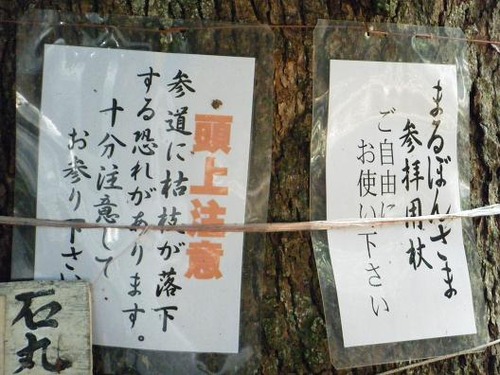 頭上注意
参道に枯枝が落下
する恐れがあります。
十分注意して
お参り下さい
まるぼんさま
参拝用杖
ご自由に
お使い下さい
石丸